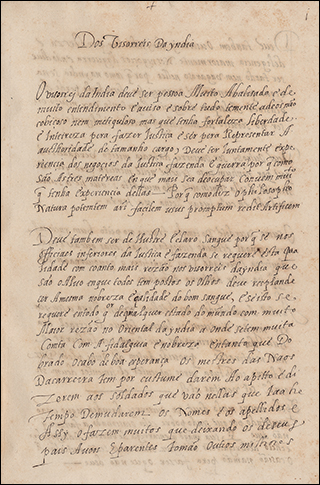 1
Dos Visorreis Da yndia
O visorej da India deve ser pessoa Muito Abalizada e de
muito entendimento e aviso e sobre tudo temente a deos não
cobiçoso nem mas que tenha fortaleza liberdade
e Inteireza pera fazer Justiça e ser pera Representar A
authoridade do tamanho cargo, Deve ser Juntamente expe
riencia dos negocios da Justiça fazenda e guerra por q̃ como
são As tres materias em que mais se a deocupar Convem muito
q̃ tenha experiencia dellas — Por q̃ como diz o philosopho
Natura potentem ars facilem usus promptum reddit Artificem
Deve tambem ser de Illustre e claro Sangue por q̃ se nos
officiaes inferiores da Justiça e fazenda se requere esta qua
lidade com muito mais rezão nos visorreis da yndia que
são o Alvo em que todo tem postos os olhos deve resplande
cer A mesma nobreza e calidade do bom sangue, e se isto se
requere em todo e de qualquer estado do mundo com muito
Maior rezão no Oriental da yndia a onde se tem muita
Conta Com A fidalguia e nobreza Em tanto que Do
brado O cabo de boa esperança Os mestres das Naos
Da carreira tem por custume darem Ao apetto e de
zerem aos soldados que vão nellas que Ia he
Tempo De mudarem Os Nomes e os apellidos e
Assy O fazem muitos que deixando os de seus
pais Avoos E parentes Tomão Outros